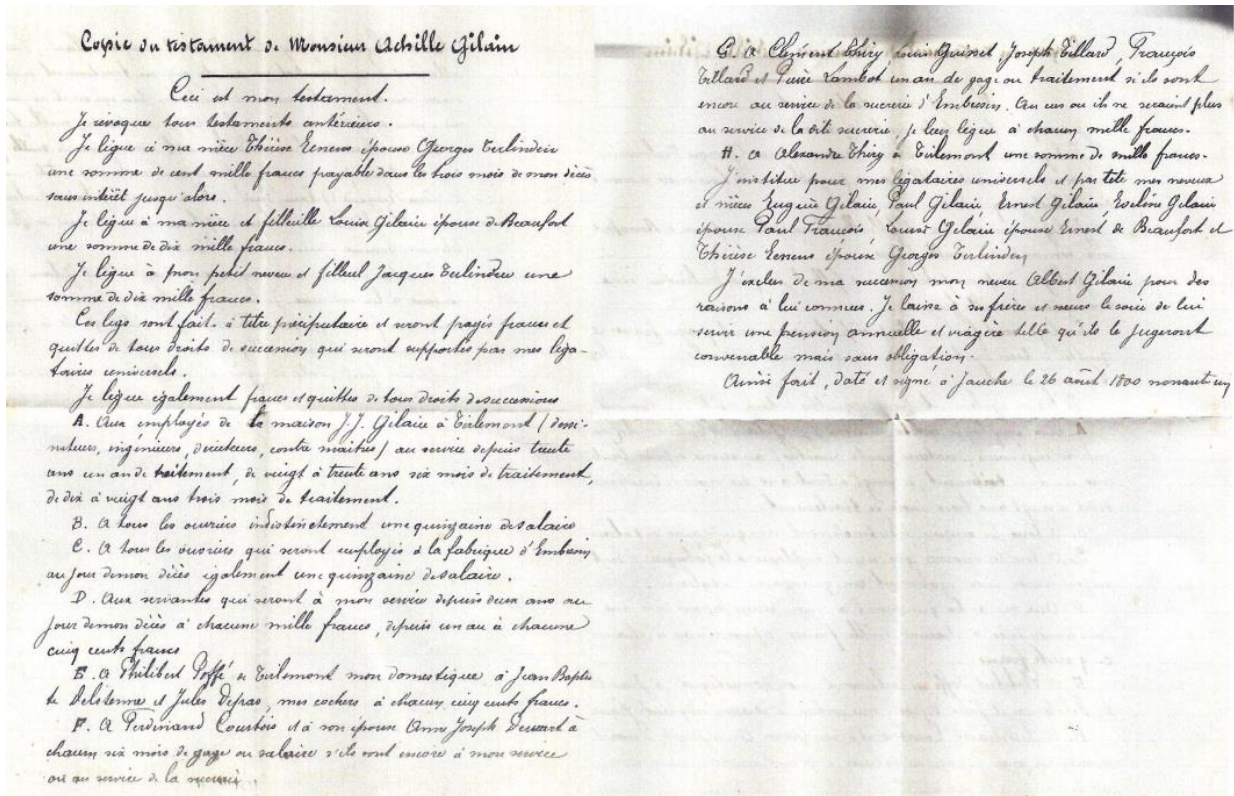 Copie du testament de Monsieur Achille Gilain
Ceci est mon testament.
Je révoque tous testaments antérieurs.
Je lègue à ma nièce Thérèse Leneus épouse Georges Terlinden
une somme de cent mille francs payable dans les trois mois de mon décès
sans intérêt jusqu'alors.
Je lègue à ma nièce et filleille Louise Gilain épouse de Beaufort
une somme de dix mille francs.
Je lègue à mon petit neveu et filleul Jacques Terlinden une
somme de dix mille francs.
Ces legs sont fait à titre préciputaire et seront payés francs et
quittes de tous droits de succession qui seront supportés par mes léga-
taires universels.
Je lègue également francs et quittes de tous droits de successions
A. Aux employés de la maison J.J. Gilain à Tirlemont (dessi-
nateurs, ingénieurs, directeurs, contre maitres) au service depuis trente
ans un an de traitement, de vingt à trente ans six mois de traitement,
de dix à vingt ans trois mois de traitement.
B. A tous les ouvriers indistinctement une quinzaine de salaire
C. A tous les ouvriers qui seront employés à la fabrique d'Embresin
au jour de mon décès également une quinzaine de salaire.
D. Aux servantes qui seront à mon service depuis deux ans au
jour de mon décès à chacune mille francs, depuis un an à chacune
cinq cents francs
E. A Philibert Poffé de Tirlemont mon domestique à Jean Baptis
te Delstenne et Jules Depras, mes cochers à chacun cinq cents francs.
F. A Ferdinand Courtois et à son épouse Anne Joseph Dewart à
chacun six mois de gage ou salaire s'ils sont encore à mon service
ou au service de la sucrerie.
G. A Clément Thiry Louis Guisset Joseph Tillard, François
Tillard et Pierre Lambot un an de gage ou traitement si ils sont
encore au service de la sucrerie d'Embresin. Au cas ou ils ne seraient plus
au service de la dite sucrerie, je leur lègue à chacun mille francs.
H. A Alexandre Thiry à Tirlemont une somme de mille francs.
J'institue pour mes légataires universels et par tête mes neveux
et nièces Eugène Gilain, Paul Gilain Ernest Gilain, Eveline Gilain
épouse Paul François, Louise Gilain épouse Ernest de Beaufort et
Thérèse Leneus épouse Georges Terlinden
J'exclus de ma succession mon neveu Albert Gilain pour des
raisons à lui connues. Je laisse à ses frères et sœurs le soin de lui
servir une pension annuelle et viagère telle qu'ils le jugeront
convenable mais sans obligation.
Ainsi fait, daté et signé à Jauche le 26 août 1800 nonant un